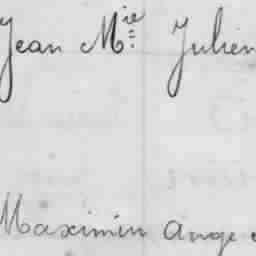 Jean Mie Julien
Maximin Ange